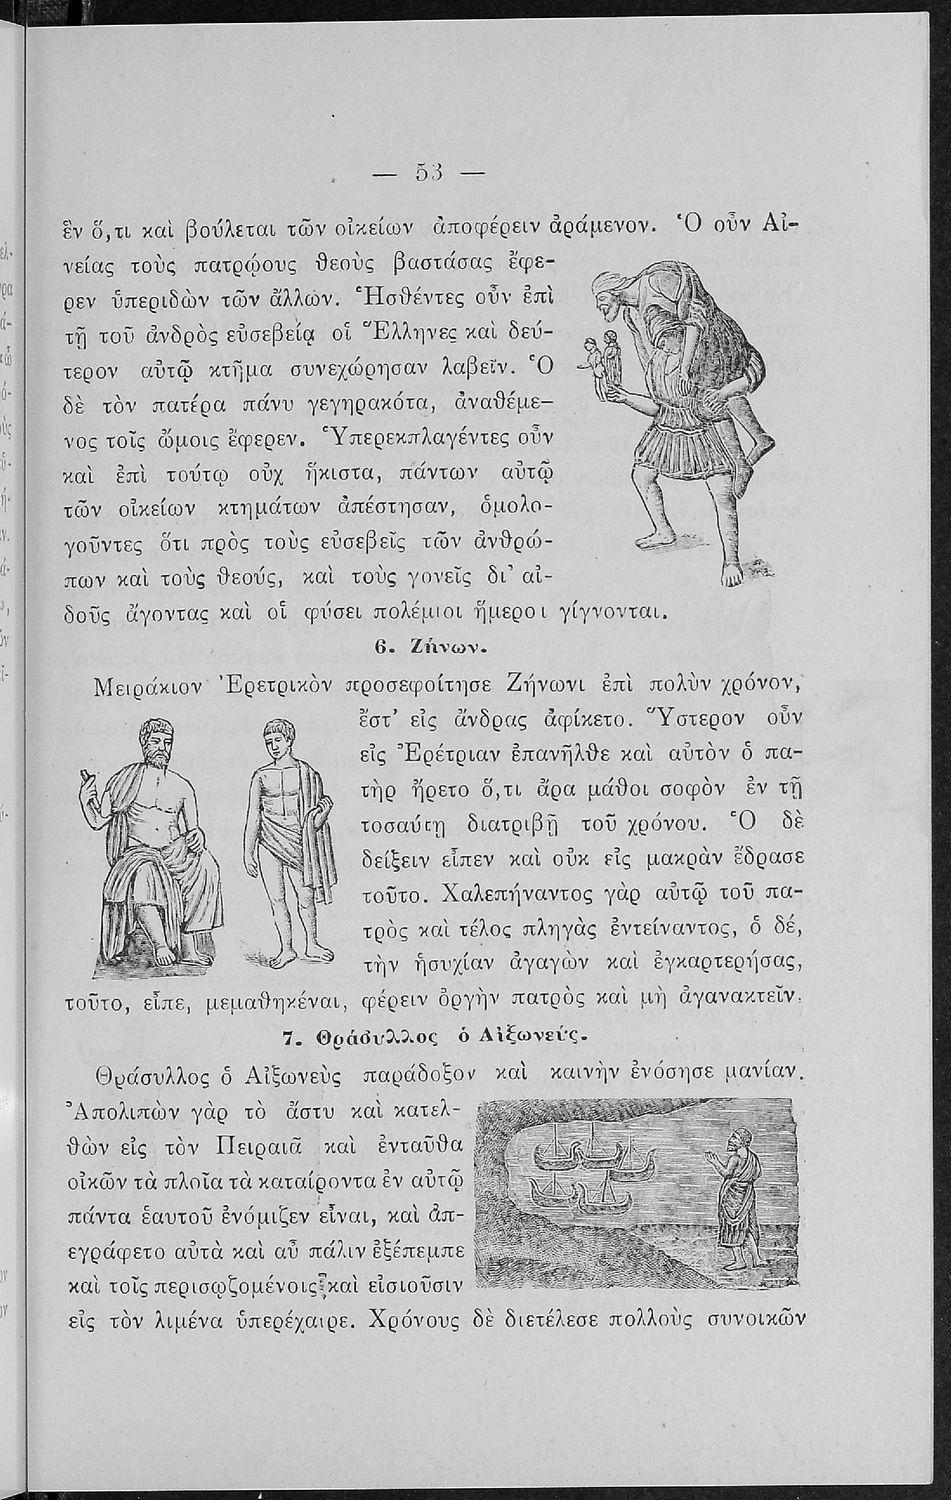 — 53 —
ἓν ὅ,τι καὶ βούλεται τῶν οἰκείων ἀποφέρειν ἀράμενον. Ὁ οὖν Αἰ-
νείας τοὺς πατρῴους θεοὺς βαστάσας ἔφε-
ρεν ὑπεριδὼν τῶν ἄλλων. Ἡσθέντες οὖν ἐπὶ
τῇ τοῦ ἀνδρὸς εὐσεβείᾳ οἱ Ἕλληνες καὶ δεύ-
τερον αὐτῷ κτῆμα συνεχώρησαν λαβεῖν. Ὁ
δὲ τὸν πατέρα πάνυ γεγηρακότα, ἀναθέμε-
νος τοῖς ὤμοις ἔφερεν. Ὑπερεκπλαγέντες οὖν
καὶ ἐπὶ τούτῳ οὐχ ἥκιστα, πάντων αὐτῷ
τῶν οἰκείων κτημάτων ἀπέστησαν, ὁμολο-
γοῦντες ὅτι πρὸς τοὺς εὐσεβεῖς τῶν ἀνθρώ-
πων καὶ τοὺς θεούς, καὶ τοὺς γονεῖς δι' αἰ-
δοῦς ἄγοντας καὶ οἱ φύσει πολέμιοι ἥμεροι γίγνονται.
6. Ζήνων.
Μειράκιον Ἐρετρικὸν προσεφοίτησε Ζήνωνι ἐπὶ πολὺν χρόνον,
ἔστ' εἰς ἄνδρας ἀφίκετο. Ὕστερον οὖν
εἰς Ἐρέτριαν ἐπανῆλθε καὶ αὐτὸν ὁ πα-
τὴρ ἤρετο ὅ,τι ἄρα μάθοι σοφὸν ἐν τῇ
τοσαύτῃ διατριβῇ τοῦ χρόνου. Ὁ δὲ
δείξειν εἶπεν καὶ οὐκ εἰς μακρὰν ἔδρασε
τοῦτο. Χαλεπήναντος γὰρ αὐτῷ τοῦ πα-
τρὸς καὶ τέλος πληγὰς ἐντείναντος, ὁ δέ,
τὴν ἡσυχίαν ἀγαγὼν καὶ ἐγκαρτερήσας,
τοῦτο, εἶπε, μεμαθηκέναι, φέρειν ὀργὴν πατρὸς καὶ μὴ ἀγανακτεῖν.
7. Θράσυλλος ὁ Αἰξωνεύς.
Θράσυλλος ὁ Αἰξωνεὺς παράδοξον καὶ καινὴν ἐνόσησε μανίαν.
Ἀπολιπὼν γὰρ τὸ ἄστυ καὶ κατελ-
θὼν εἰς τὸν Πειραιᾶ καὶ ἐνταῦθα
οἰκῶν τὰ πλοῖα τὰ καταίροντα ἐν αὐτῷ
πάντα ἑαυτοῦ ἐνόμιζεν εἶναι, καὶ ἀπ-
εγράφετο αὐτὰ καὶ αὖ πάλιν ἐξέπεμπε
καὶ τοῖς περισῳζομένοις καὶ εἰσιοῦσιν
εἰς τὸν λιμένα ὑπερέχαιρε. Χρόνους δὲ διετέλεσε πολλοὺς συνοικῶν